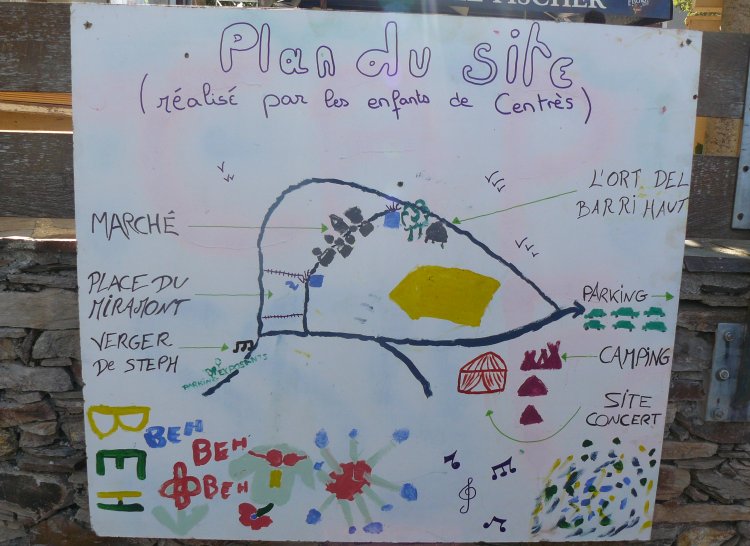 FISCHER
Plan du site
(réalisé par les enfants de Centrès)
L'ORT DEL
BARRI HAUT
MARCHÉ
PLACE DU
MIRAMONT
PARKING
VERGER
De STEPH
PARKING EXPOSANTS
CAMPING
SITE
CONCERT
BEH
BEH
BEH
BEH